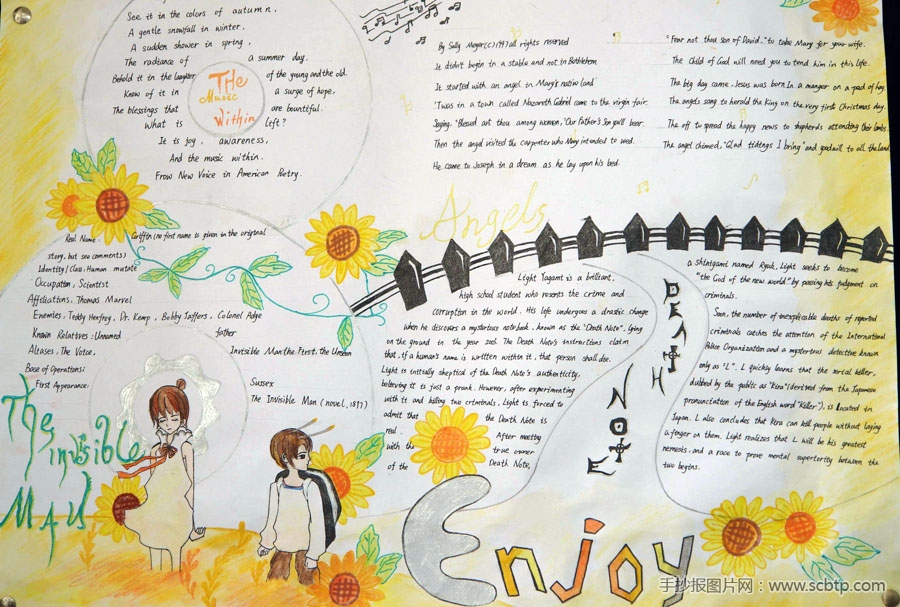 See it in the colors of autumn,
A gentle snowfall in winter,
A sudden shower in spring,
The radiance of a summer day.
Behold it in the laughter of the young and the old.
Know of it in a surge of hope,
The blessings that are bountiful.
What is left?
It is joy, awareness,
And the music within.
From New Voice in American Poetry.
The
Music
Within
By Sally Meyer(c)1997 all rights reserved
It didn't begin in a stable and not in Bethlehem
It started with an angel in Mary's native land
'Twas in a town called Nazareth Gabriel came to the virgin fair.
Saying, "Blessed art thou among women, "Our Father's Son you'll bear.
Then the angel visited the carpenter who Mary intended to wed.
He came to Joseph in a dream as he lay upon his bed.
"Fear not thou son of David," to take Mary for your wife.
The Child of God will need you to tend him in this life.
The big day came, Jesus was born In a manger on a pad of hay.
The angels sang to herald the King on the very first Christmas day.
The off to spread the happy news to shepherds attending their lambs.
The angel chimed, "Glad tidings I bring" and goodwill to all the land
Angels
Real Name: Griffin (no first name is given in the original
story, but see comments)
Identity/Class: Human mutate
Occupation, Scientist
Affiliations, Thomas Marvel
Enemies, Teddy Henfrey, Dr. Kemp, Bobby Jaffers, Colonel Adye
Known Relatives: Unnamed father
Aliases, The Voice, Invisible Man the First, the Unseen
Base of Operations: Sussex
First Appearance: The Invisible Man (novel, 1897)
The
invisible
Man
Light Yagami is a brilliant,
high school student who resents the crime and
corruption in the world. His life undergoes a drastic change
when he discovers a mysterious notebook, known as the "Death Note", lying
on the ground in the year 2003. The Death Note's instructions claim
that, if a human's name is written within it, that person shall die.
Light is initially skeptical of the Death Note's authenticity,
believing it is just a prank. However, after experimenting
with it and killing two criminals, Light is forced to
admit that the Death Note is
real. After meeting
with the true owner
of the Death Note,
DEATH
NOTE
a shinigami named Ryuk, Light seeks to become
"the God of the new world" by passing his judgment on
criminals.
Soon, the number of inexplicable deaths of reported
criminals catches the attention of the International
Police Organization and a mysterious detective known
only as "L". L quickly learns that the serial killer,
dubbed by the public as "Kira"(derived from the Japanese
pronunciation of the English word "Killer"), is located in
Japan. L also concludes that Kira can kill people without laying
a finger on them. Light realizes that L will be his greatest
nemesis, and a race to prove mental superiority between the
two begins.
Enjoy
手抄报图片网：www.scbtp.com